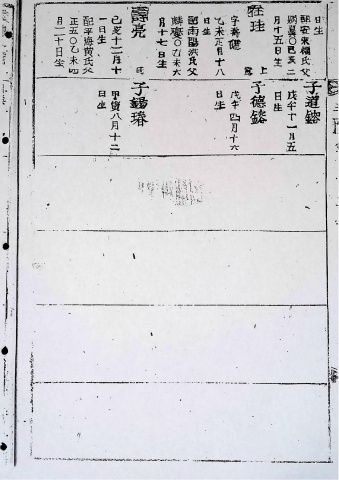 日生
配安東權氏父
乙亥二
月十五日生
在珪
乙未正月十八
日生
配南陽洪氏父
麟慶〇乙未六
月十七日生
壽亮
己亥十二月十
一日生
配平海黃氏父
正五〇乙未四
月二十日生
上
子道鎔
戊午十一月五
日生
子德鎔
戊午四月十六
日生
子錫璿
甲寅八月十二
日生